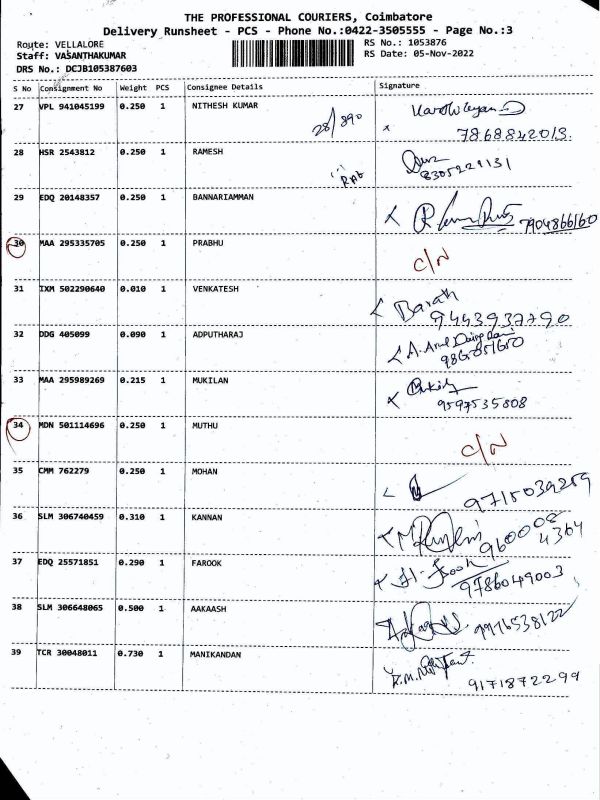 THE PROFESSIONAL COURIERS, Coimbatore
Delivery Runsheet - PCS - Phone No.:0422-3505555 - Page No.:3
Route: VELLALORE
RS No.: 1053876
Staff: VASANTHAKUMAR
RS Date: 05-Nov-2022
DRS No.: DCJB105387603
S No Consignment No Weight PCS Consignee Details Signature
27 VPL 941045199 0.250 1 NITHESH KUMAR
28/890
x 7868842013.
28 HSR 2543812 0.250 1 RAMESH
8305229131
29 EDQ 20148357 0.250 1 BANNARIAMMAN
7904866160
30 MAA 295335705 0.250 1 PRABHU C/N
31 IXM 502290640 0.010 1 VENKATESH Barath
9443937790
32 DDG 405099 0.090 1 ADPUTHARAJ
33 MAA 295989269 0.215 1 MUKILAN
9597535808
34 MDN 501114696 0.250 1 MUTHU C/N
35 CMM 762279 0.250 1 MOHAN 9715039259
36 SLM 306740459 0.310 1 KANNAN 960002
4364
37 EDQ 25571851 0.290 1 FAROOK
9786049003
38 SLM 306648065 0.500 1 AAKAASH 9976538122
39 TCR 30048011 0.730 1 MANIKANDAN
9171872299